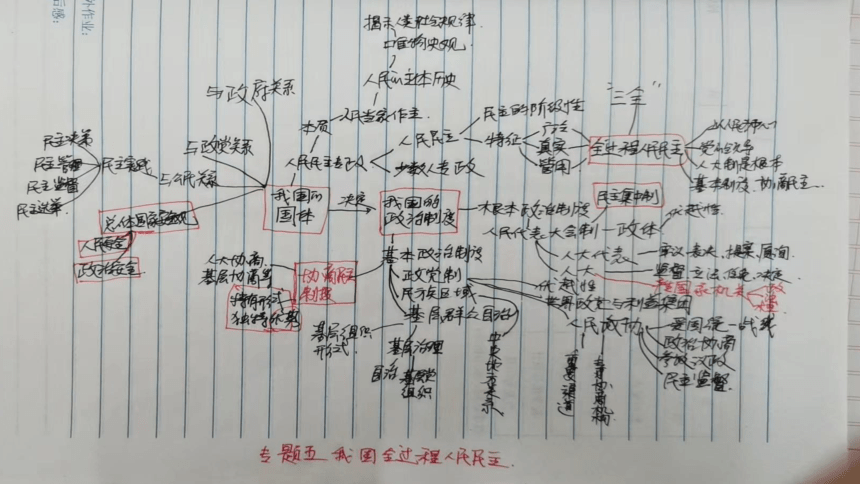 外作业:
后感:
揭示人类社会规律
唯物史观
人民的主体历史
与政府关系
本质
人民当家作主
民主的阶级性
"三全"
民主决策
民主管理
民主监督
民主选举
民主实践
与政党关系
与人民关系
人民民主专政
人民民主
少数人专政
特征
广泛
真实
管用
全过程人民民主
人大制度根本
基本制度、协商民主
总体国家安全观
人民安全
政治安全
我国的
国体
决定
我国的
政治制度
根本政治制度
民主集中制
人民代表大会制—政体
优越性
人大代表
审议、表决、提案、质询
人大
监督、立法、任免、决定
人大协商
基层协商等
特有形式
独特优势
协商民主
制度
基本政治制度
政党制
民族区域
基层群众自治
优越性
世界政党与利益集团
人民政协
爱国统一战线
政治协商
参政议政
民主监督
重要渠道
专门协商机构
基层组织
形式
基层治理
自治
基层党
组织
专题五 我国全过程人民民主